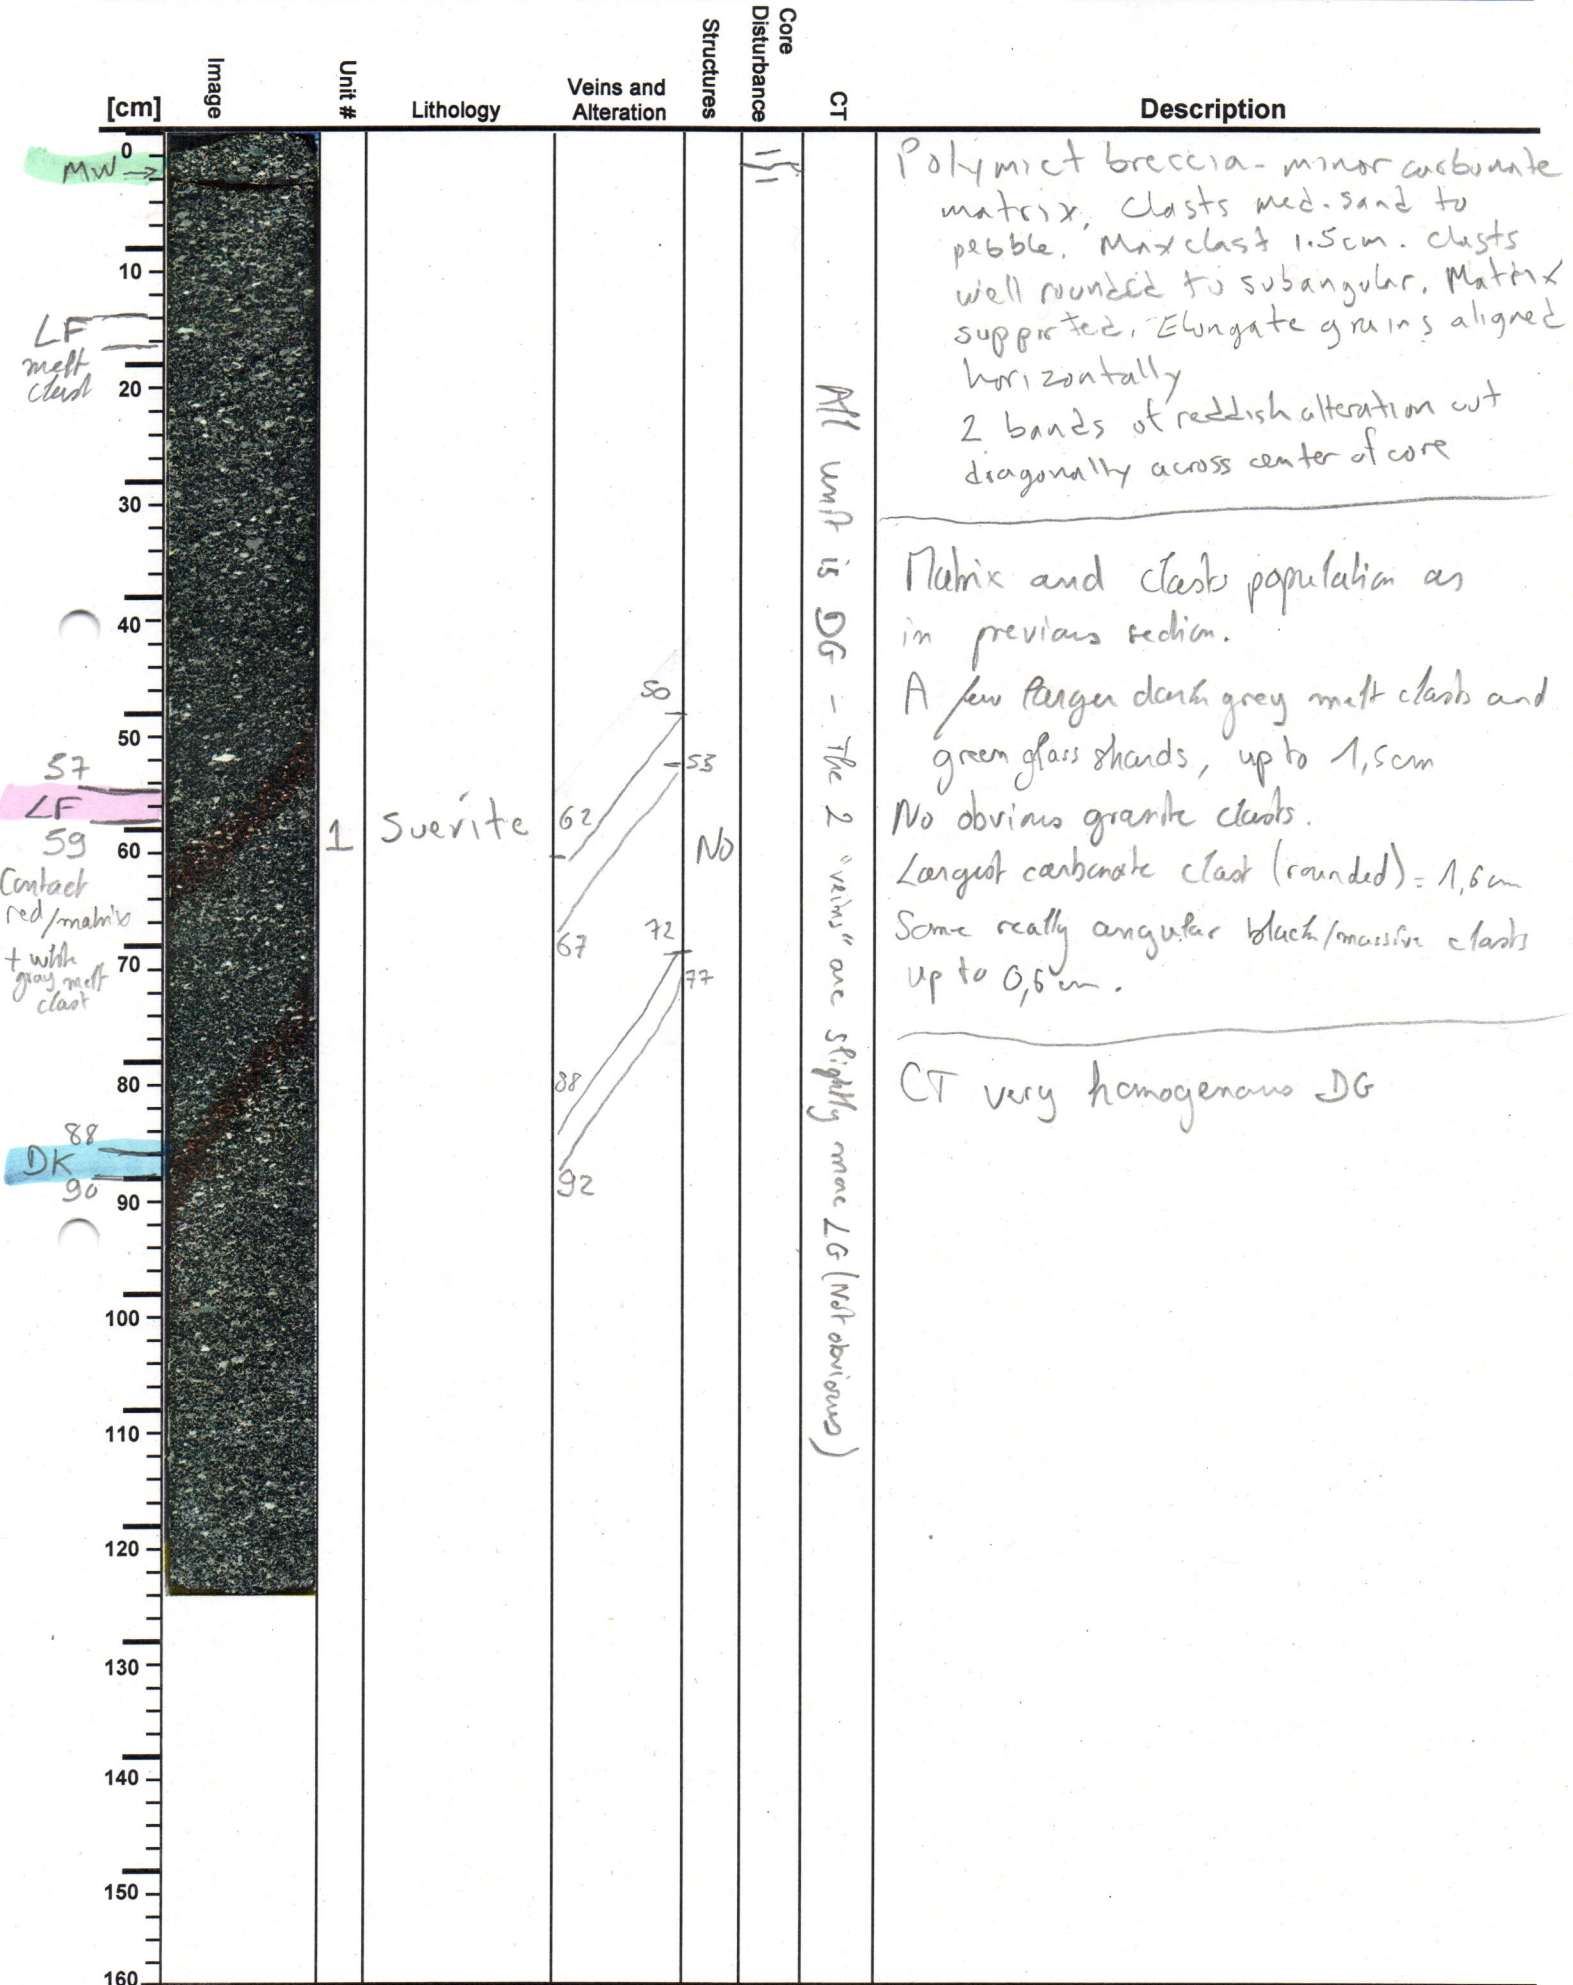 [cm]
Image
Unit #
Lithology
Veins and
Alteration
Structures
Core
Disturbance
CT
Description
0
10
20
30
40
50
60
70
80
90
100
110
120
130
140
150
160
MW →
LF
melt
clast
57
LF
59
Contact
red/matrix
+ with
gray melt
clast
88
DK
90
1
Suevite
50
53
62
67
72
77
88
92
No
All unit is DG - The 2 "veins" are slightly more LG (Not obvious)
Polymict breccia - minor carbonate
matrix, Clasts med. sand to
pebble. Max clast 1.5cm. clasts
well rounded to subangular. Matrix
supported. Elongate grains aligned
horizontally
2 bands of reddish alteration cut
diagonally across center of core
Matrix and clasts population as
in previous section.
A few larger dark grey melt clasts and
green glass shards, up to 1,5cm
No obvious granite clasts.
Largest carbonate clast (rounded) = 1,6 cm
Some really angular black/massive clasts
up to 0,6 cm.
CT very homogenous DG